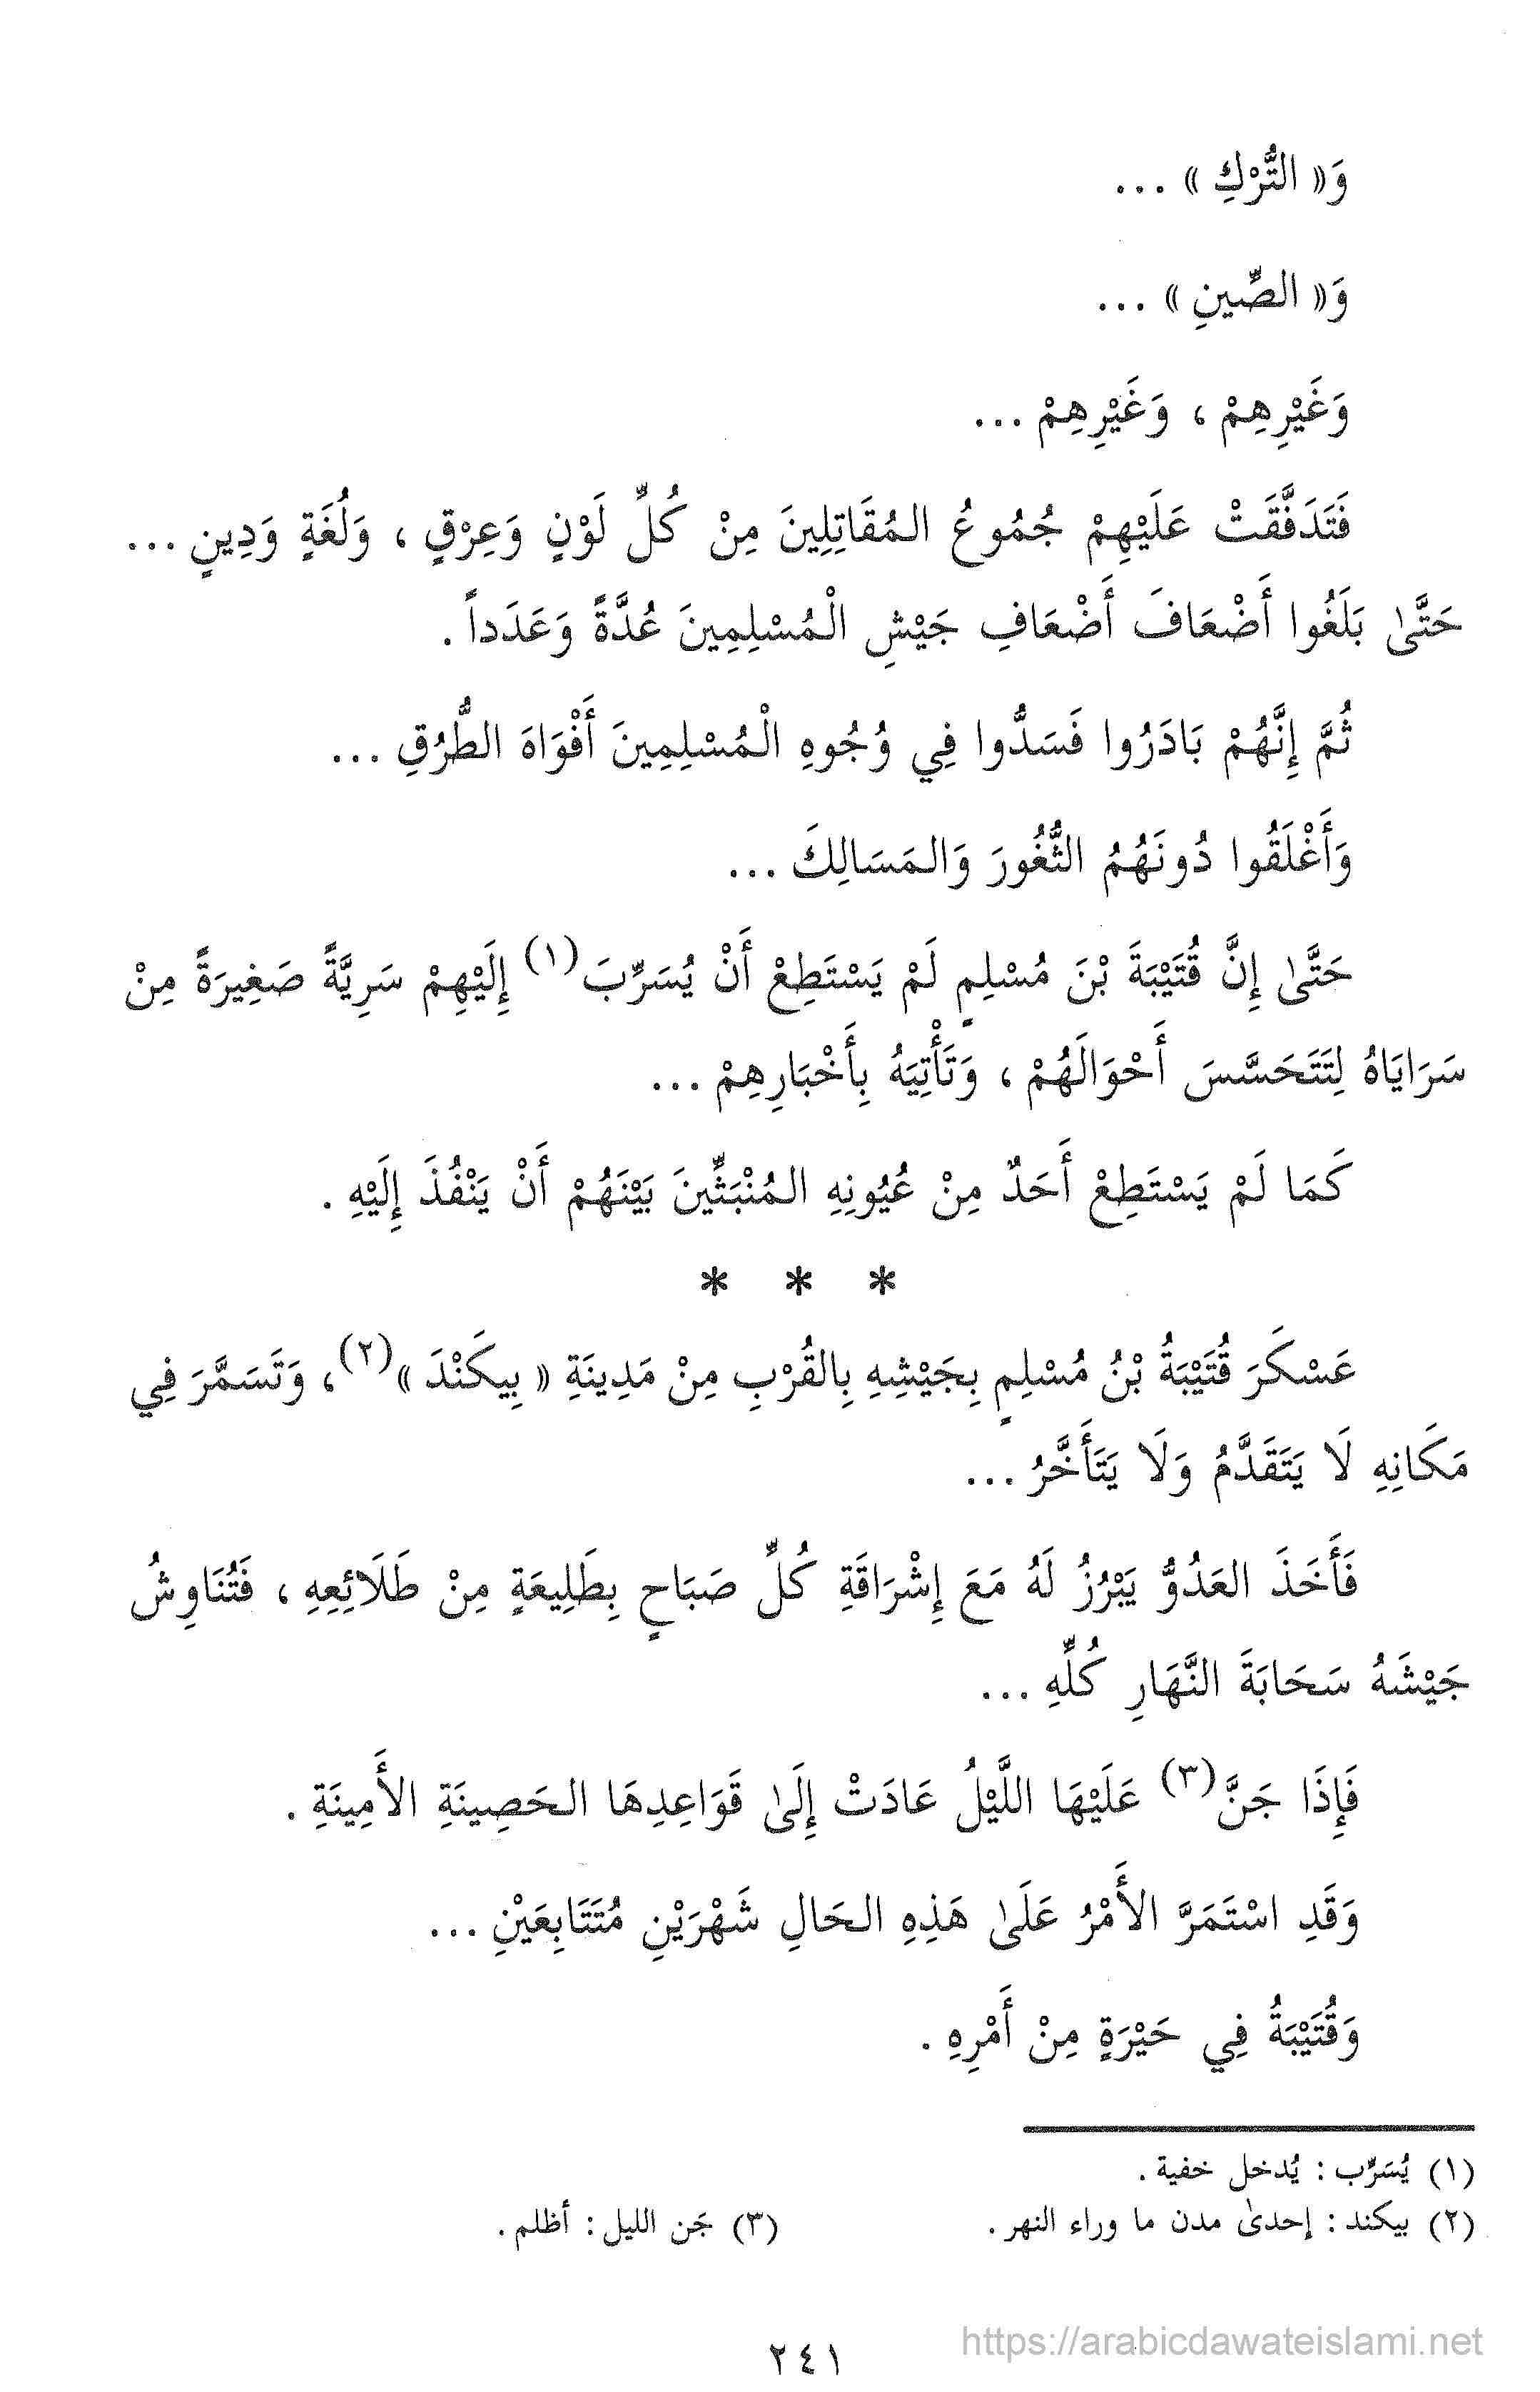 وَ« التُّرْكِ » ...
وَ« الصِّينِ » ...
وَغَيْرِهِمْ ، وَغَيْرِهِمْ ...
فَتَدَفَّقَتْ عَلَيْهِمْ جُمُوعُ المُقَاتِلِينَ مِنْ كُلِّ لَوْنٍ وَعِرْقٍ ، وَلُغَةٍ وَدِينٍ ...
حَتَّىٰ بَلَغُوا أَضْعَافَ أَضْعَافِ جَيْشِ الْمُسْلِمِينَ عُدَّةً وَعَدَداً .
ثُمَّ إِنَّهُمْ بَادَرُوا فَسَدُّوا فِي وُجُوهِ الْمُسْلِمِينَ أَفْوَاهَ الطُّرُقِ ...
وَأَغْلَقُوا دُونَهُمُ الثُّغُورَ وَالمَسَالِكَ ...
حَتَّىٰ إِنَّ قُتَيْبَةَ بْنَ مُسْلِمٍ لَمْ يَسْتَطِعْ أَنْ يُسَرِّبَ(١) إِلَيْهِمْ سَرِيَّةً صَغِيرَةً مِنْ
سَرَايَاهُ لِتَتَحَسَّسَ أَحْوَالَهُمْ ، وَتَأْتِيَهُ بِأَخْبَارِهِمْ ...
كَمَا لَمْ يَسْتَطِعْ أَحَدٌ مِنْ عُيُونِهِ المُنْبَثِّينَ بَيْنَهُمْ أَنْ يَنْفُذَ إِلَيْهِ .
* * *
عَسْكَرَ قُتَيْبَةُ بْنُ مُسْلِمٍ بِجَيْشِهِ بِالقُرْبِ مِنْ مَدِينَةِ « بِيكَنْدَ »(٢)، وَتَسَمَّرَ فِي
مَكَانِهِ لَا يَتَقَدَّمُ وَلَا يَتَأَخَّرُ ...
فَأَخَذَ العَدُوُّ يَبْرُزُ لَهُ مَعَ إِشْرَاقَةِ كُلِّ صَبَاحٍ بِطَلِيعَةٍ مِنْ طَلَائِعِهِ ، فَتُنَاوِشُ
جَيْشَهُ سَحَابَةَ النَّهَارِ كُلِّهِ ...
فَإِذَا جَنَّ(٣) عَلَيْهَا اللَّيْلُ عَادَتْ إِلَىٰ قَوَاعِدِهَا الحَصِينَةِ الأَمِينَةِ .
وَقَدِ اسْتَمَرَّ الأَمْرُ عَلَىٰ هَذِهِ الحَالِ شَهْرَيْنِ مُتَتَابِعَيْنِ ...
وَقُتَيْبَةُ فِي حَيْرَةٍ مِنْ أَمْرِهِ .
(١) يُسَرِّب : يُدخل خفية .
(٢) بيكند : إحدىٰ مدن ما وراء النهر . (٣) جَن الليل : أظلم .
٢٤١
https://arabicdawateislami.net